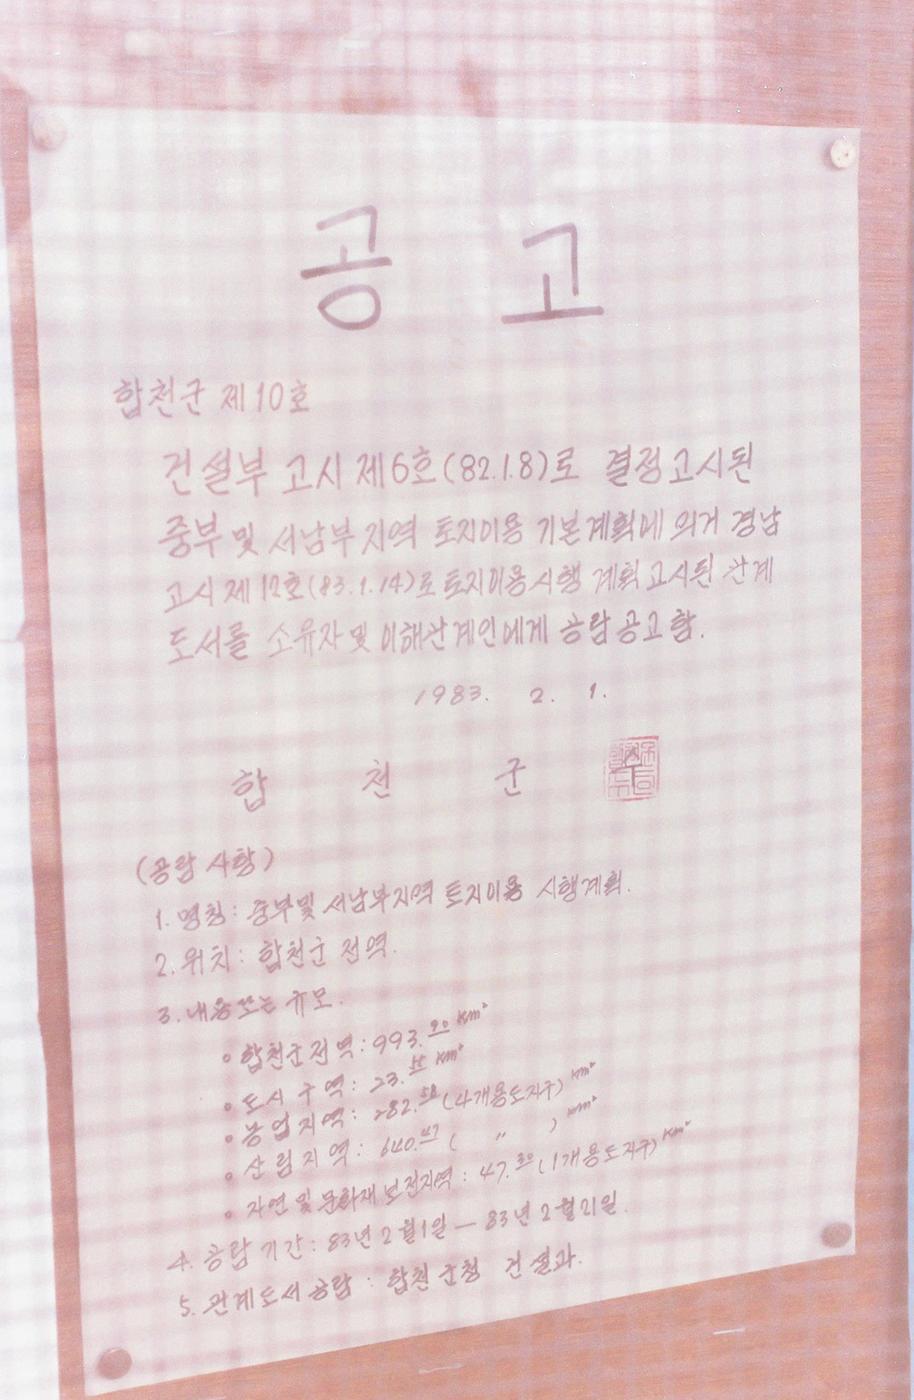 공고
합천군 제10호
건설부 고시 제6호(82.1.8)로 결정고시된
중부 및 서남부 지역 토지이용 기본계획에 의거 경남
고시 제12호(83.1.14)로 토지이용시행 계획 고시된 관계
도서를 소유자 및 이해관계인에게 공람 공고함.
1983. 2. 1.
합천군
(공람 사항)
1. 명칭: 중부및 서남부지역 토지이용 시행계획.
2. 위치: 합천군 전역.
3. 내용또는 규모.
• 합천군전역: 993.90 Km²
• 도시 구역: 23.55 Km²
• 농업지역: 282.58 (4개용도지구) Km²
• 산림지역: 640.47 ( 〃 ) Km²
• 자연 및 문화재보전지역: 47.30 (1개용도지구) Km²
4. 공람 기간: 83년 2월1일 — 83년 2월21일.
5. 관계도서 공람: 합천군청 건설과.